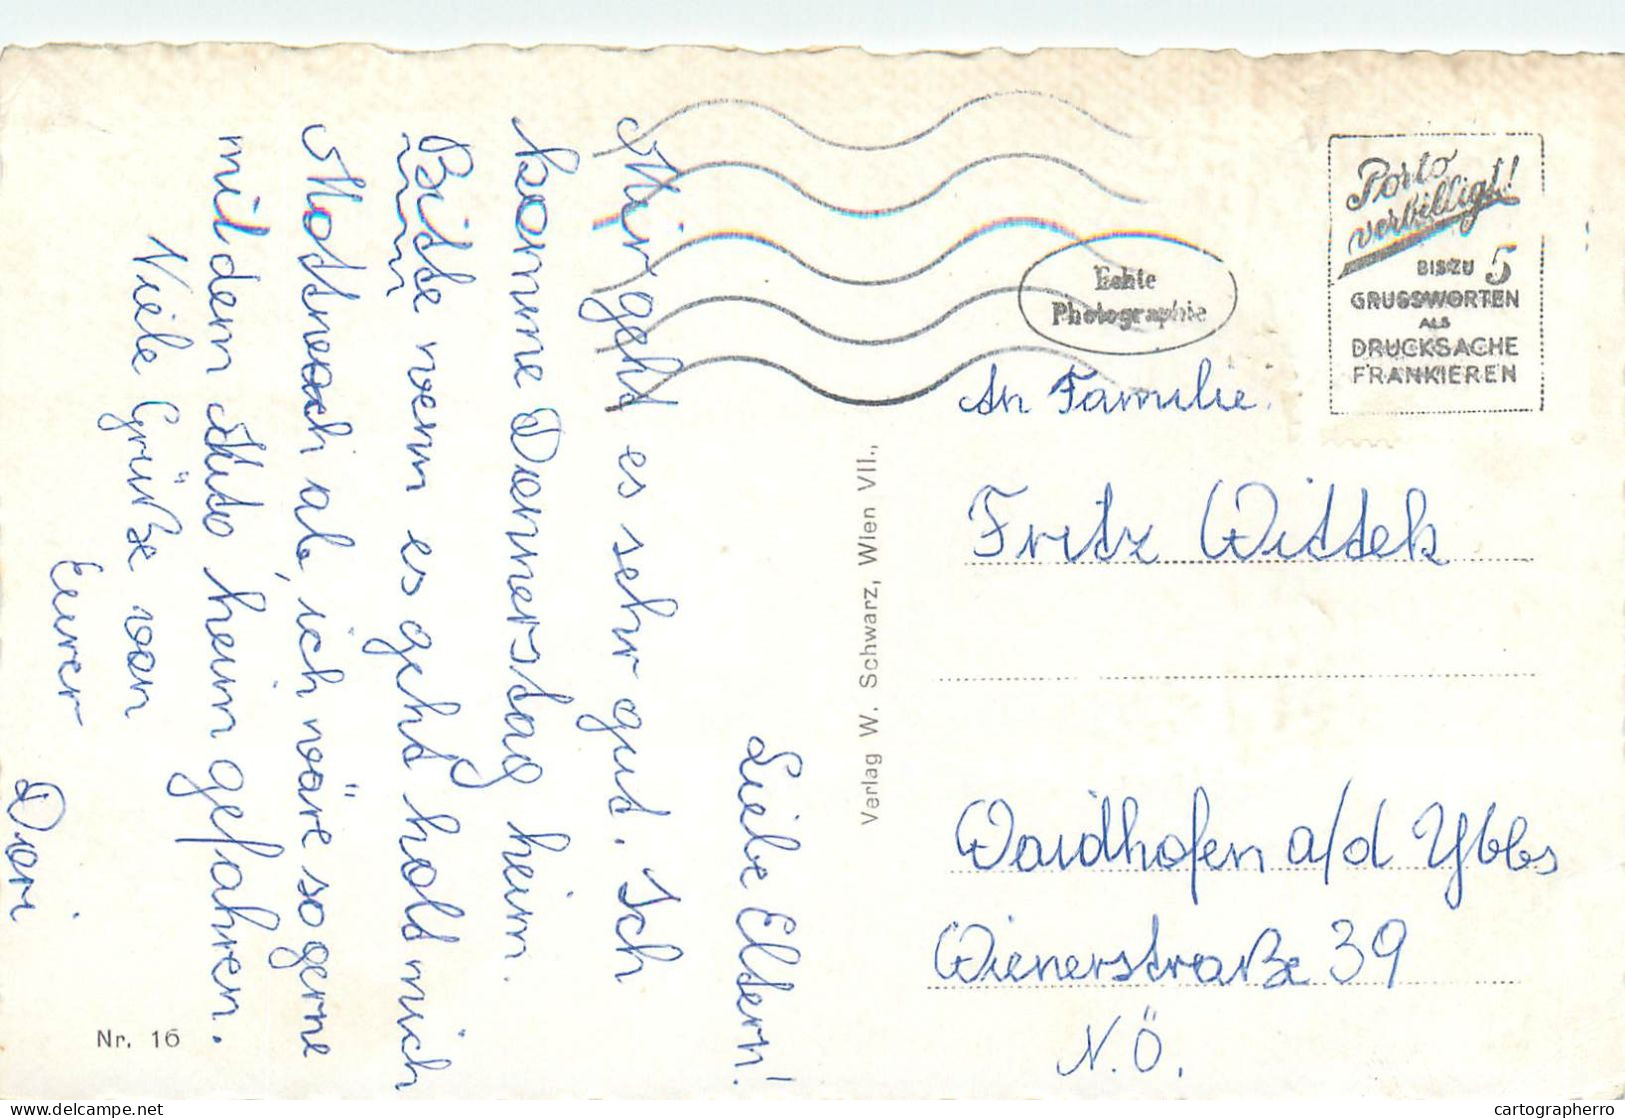 Liebe Eltern!
Mir geht es sehr gut. Ich
komme Donnerstag heim.
Bitte wenn es geht holt mich
ab, ich wäre so gerne
mit dem Auto heim gefahren.
Viele Grüße von
Eurer
Dori
Nr. 16
Verlag W. Schwarz, Wien VII.,
Echte
Photographie
Porto
verbilligt!
BIS ZU 5
GRUSSWORTEN
ALS
DRUCKSACHE
FRANKIEREN
An Familie
Fritz Wittek
Waidhofen a/d Ybbs
Wienerstraße 39
N.Ö.
delcampe.net
cartographerro